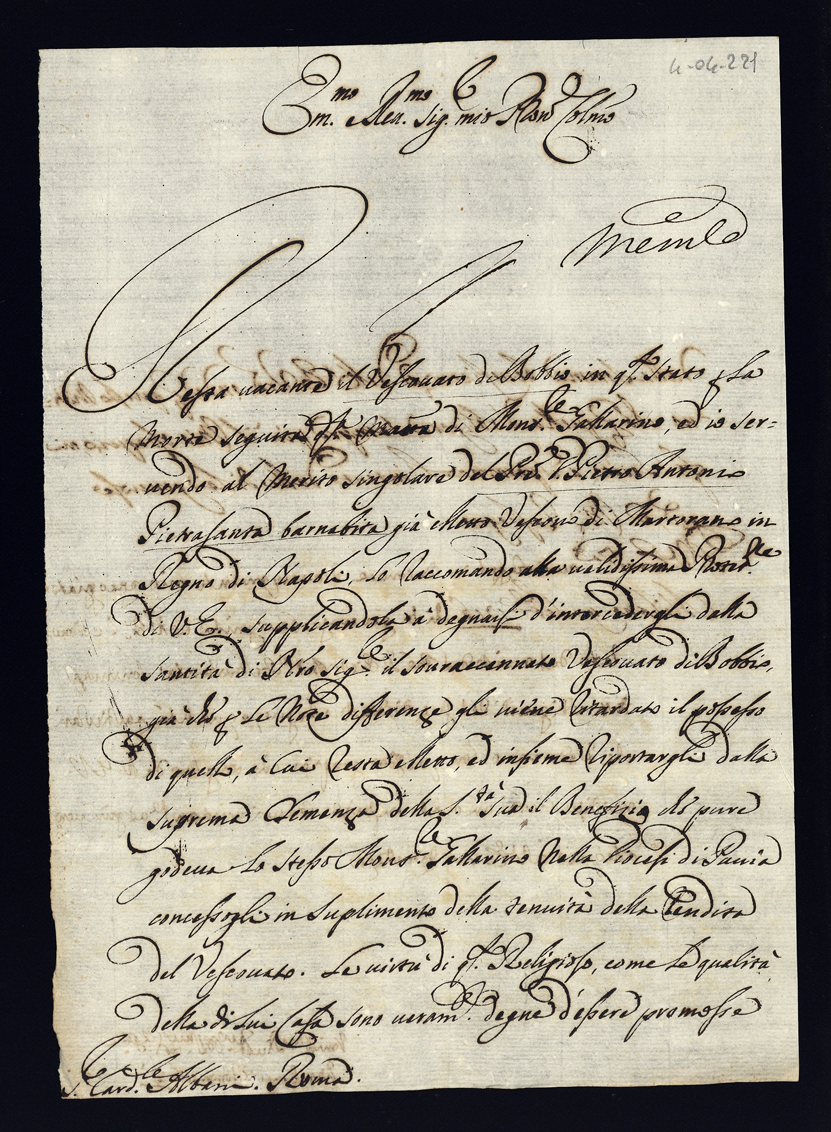 4-04-221
Em.mo e Rev.mo Sig. mio P̄ron Colmo
Resta vacante il Vescovato di Bobbio in q.to Stato p la
morte seguita di Mons.re Gallarino, ed io ser-
vendo al merito singolare del Pre D. Pietro Antonio
Pietrasanta barnabita già eletto Vescovo di Martorano in
Regno di Napoli, lo raccomando alla validissima Protez.ne
di V. E., supplicandola à degnarsi d'intercedergli dalla
Santità di Nro Sig.re il souraccennato Vescovato di Bobbio,
già che p le note differenze gli viene ritardato il possesso
di quello, à cui resta eletto, ed insieme riportargli dalla
suprema Clemenza della S.tà Sua il Benefizio che pure
godeva lo stesso Mons.re Gallarino nella Diocesi di Pavia
concessogli in suplimento della tenuità della rendita
del Vescovato. Le virtù di q.to Religioso, come le qualità
della di lui Casa sono veram.te degne d'essere promosse
S. Card.le Albani. Roma.